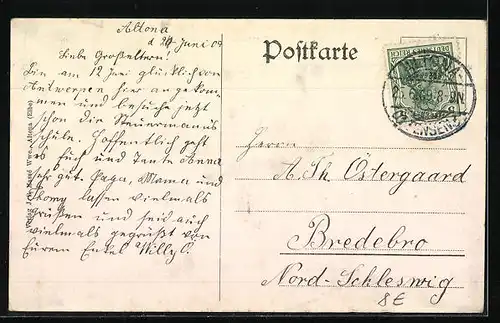 Altona
d 24 Juni 09
Liebe Großeltern!
Bin am 12 Juni glücklich von
Antwerpen hier angekom
men und besuche jetzt
schon die Steuermanns
schule. Hoffentlich geht
es Euch und Tante Anna
sehr gut. Papa, Mama und
lassen vielmals
Grüßen und seid auch
vielmals gegrüßt von
Eurem Enkel Willy O.
Postkarte
DEUTSCHES REICH
ALTONA
8-9N
Herrn
A. Th. Östergaard
Bredebro
Nord-Schleswig
8E